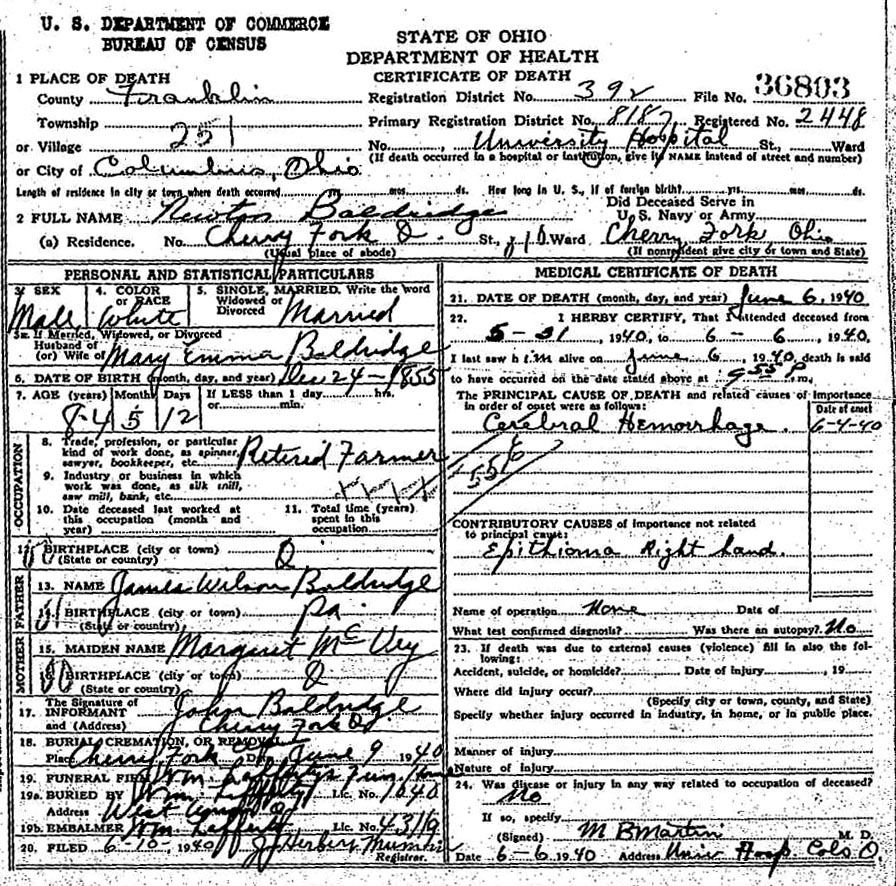 U. S. DEPARTMENT OF COMMERCE
BUREAU OF CENSUS
STATE OF OHIO
DEPARTMENT OF HEALTH
CERTIFICATE OF DEATH
1 PLACE OF DEATH
County Franklin
Registration District No. 392 File No. 36803
Township
Primary Registration District No. 8187 Registered No. 2448
or Village 251
No. , University Hospital St., Ward
(If death occurred in a hospital or institution, give its NAME instead of street and number)
or City of Columbus, Ohio
Length of residence in city or town where death occurred yrs. mos. ds. How long in U. S., if of foreign birth? yrs. mos. ds.
2 FULL NAME Newton Baldridge
Did Deceased Serve in
U. S. Navy or Army
(a) Residence. No. Cherry Fork O. St., Ward Cherry Fork Ohio
(Usual place of abode) (If nonresident give city or town and State)
PERSONAL AND STATISTICAL PARTICULARS
3. SEX Male
4. COLOR or RACE White
5. SINGLE, MARRIED, Write the word
Widowed or
Divorced Married
5a. If Married, Widowed, or Divorced
Husband of
(or) Wife of Mary Emma Baldridge
6. DATE OF BIRTH (month, day, and year) Dec 24 - 1855
7. AGE (years) Months Days If LESS than 1 day hrs.
or min.
84 5 12
OCCUPATION
8. Trade, profession, or particular
kind of work done, as spinner,
sawyer, bookkeeper, etc. Retired Farmer
9. Industry or business in which
work was done, as silk mill,
saw mill, bank, etc.
10. Date deceased last worked at
this occupation (month and
year)
11. Total time (years)
spent in this
occupation
12. BIRTHPLACE (city or town)
(State or country) O
FATHER
13. NAME James Wilson Baldridge
14. BIRTHPLACE (city or town)
(State or country) Pa.
MOTHER
15. MAIDEN NAME Margaret McVey
16. BIRTHPLACE (city or town)
(State or country) O
17. The Signature of
INFORMANT John Baldridge
and (Address) Cherry Fork O
18. BURIAL, CREMATION, OR REMOVAL
Place Cherry Fork Date June 9 1940
19. FUNERAL FIRM Wm Lafferty's Fun. Home
19a. BURIED BY Wm Lafferty Lic. No. 1040
Address West Union O
19b. EMBALMER Wm Lafferty Lic. No. 4311
20. FILED 6-10-, 1940 J Herbert
Registrar.
MEDICAL CERTIFICATE OF DEATH
21. DATE OF DEATH (month, day, and year) June 6, 1940
22. I HEREBY CERTIFY, That I attended deceased from
5-31 , 1940, to 6 - 6 , 1940.
I last saw him alive on June 6 , 1940, death is said
to have occurred on the date stated above at 955 P. m.
The PRINCIPAL CAUSE OF DEATH and related causes of importance
in order of onset were as follows:
Date of onset
Cerebral Hemorrhage. 6-4-40
CONTRIBUTORY CAUSES of importance not related
to principal cause:
Epithioma Right hand.
Name of operation None Date of
What test confirmed diagnosis? Was there an autopsy? No
23. If death was due to external causes (violence) fill in also the fol-
lowing:
Accident, suicide, or homicide? Date of injury , 19
Where did injury occur?
(Specify city or town, county, and State)
Specify whether injury occurred in industry, in home, or in public place.
Manner of injury
Nature of injury
24. Was disease or injury in any way related to occupation of deceased?
No
If so, specify
(Signed) M B Martin M. D.
Date 6-6 1940 Address Univ Hosp Cols O.